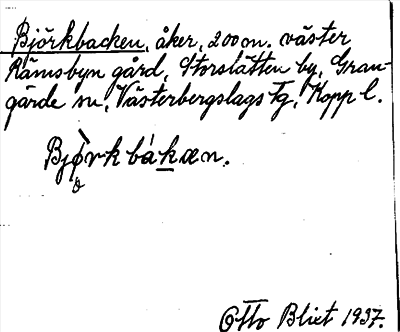 Björkbacken, åker, 200 m. väster
Rämsbyn gård, Storslätten by, Gran-
gärde sn, Västerbergslags Fg, Kopp l.
Bjørk bákæn.
Otto Blixt 1937.